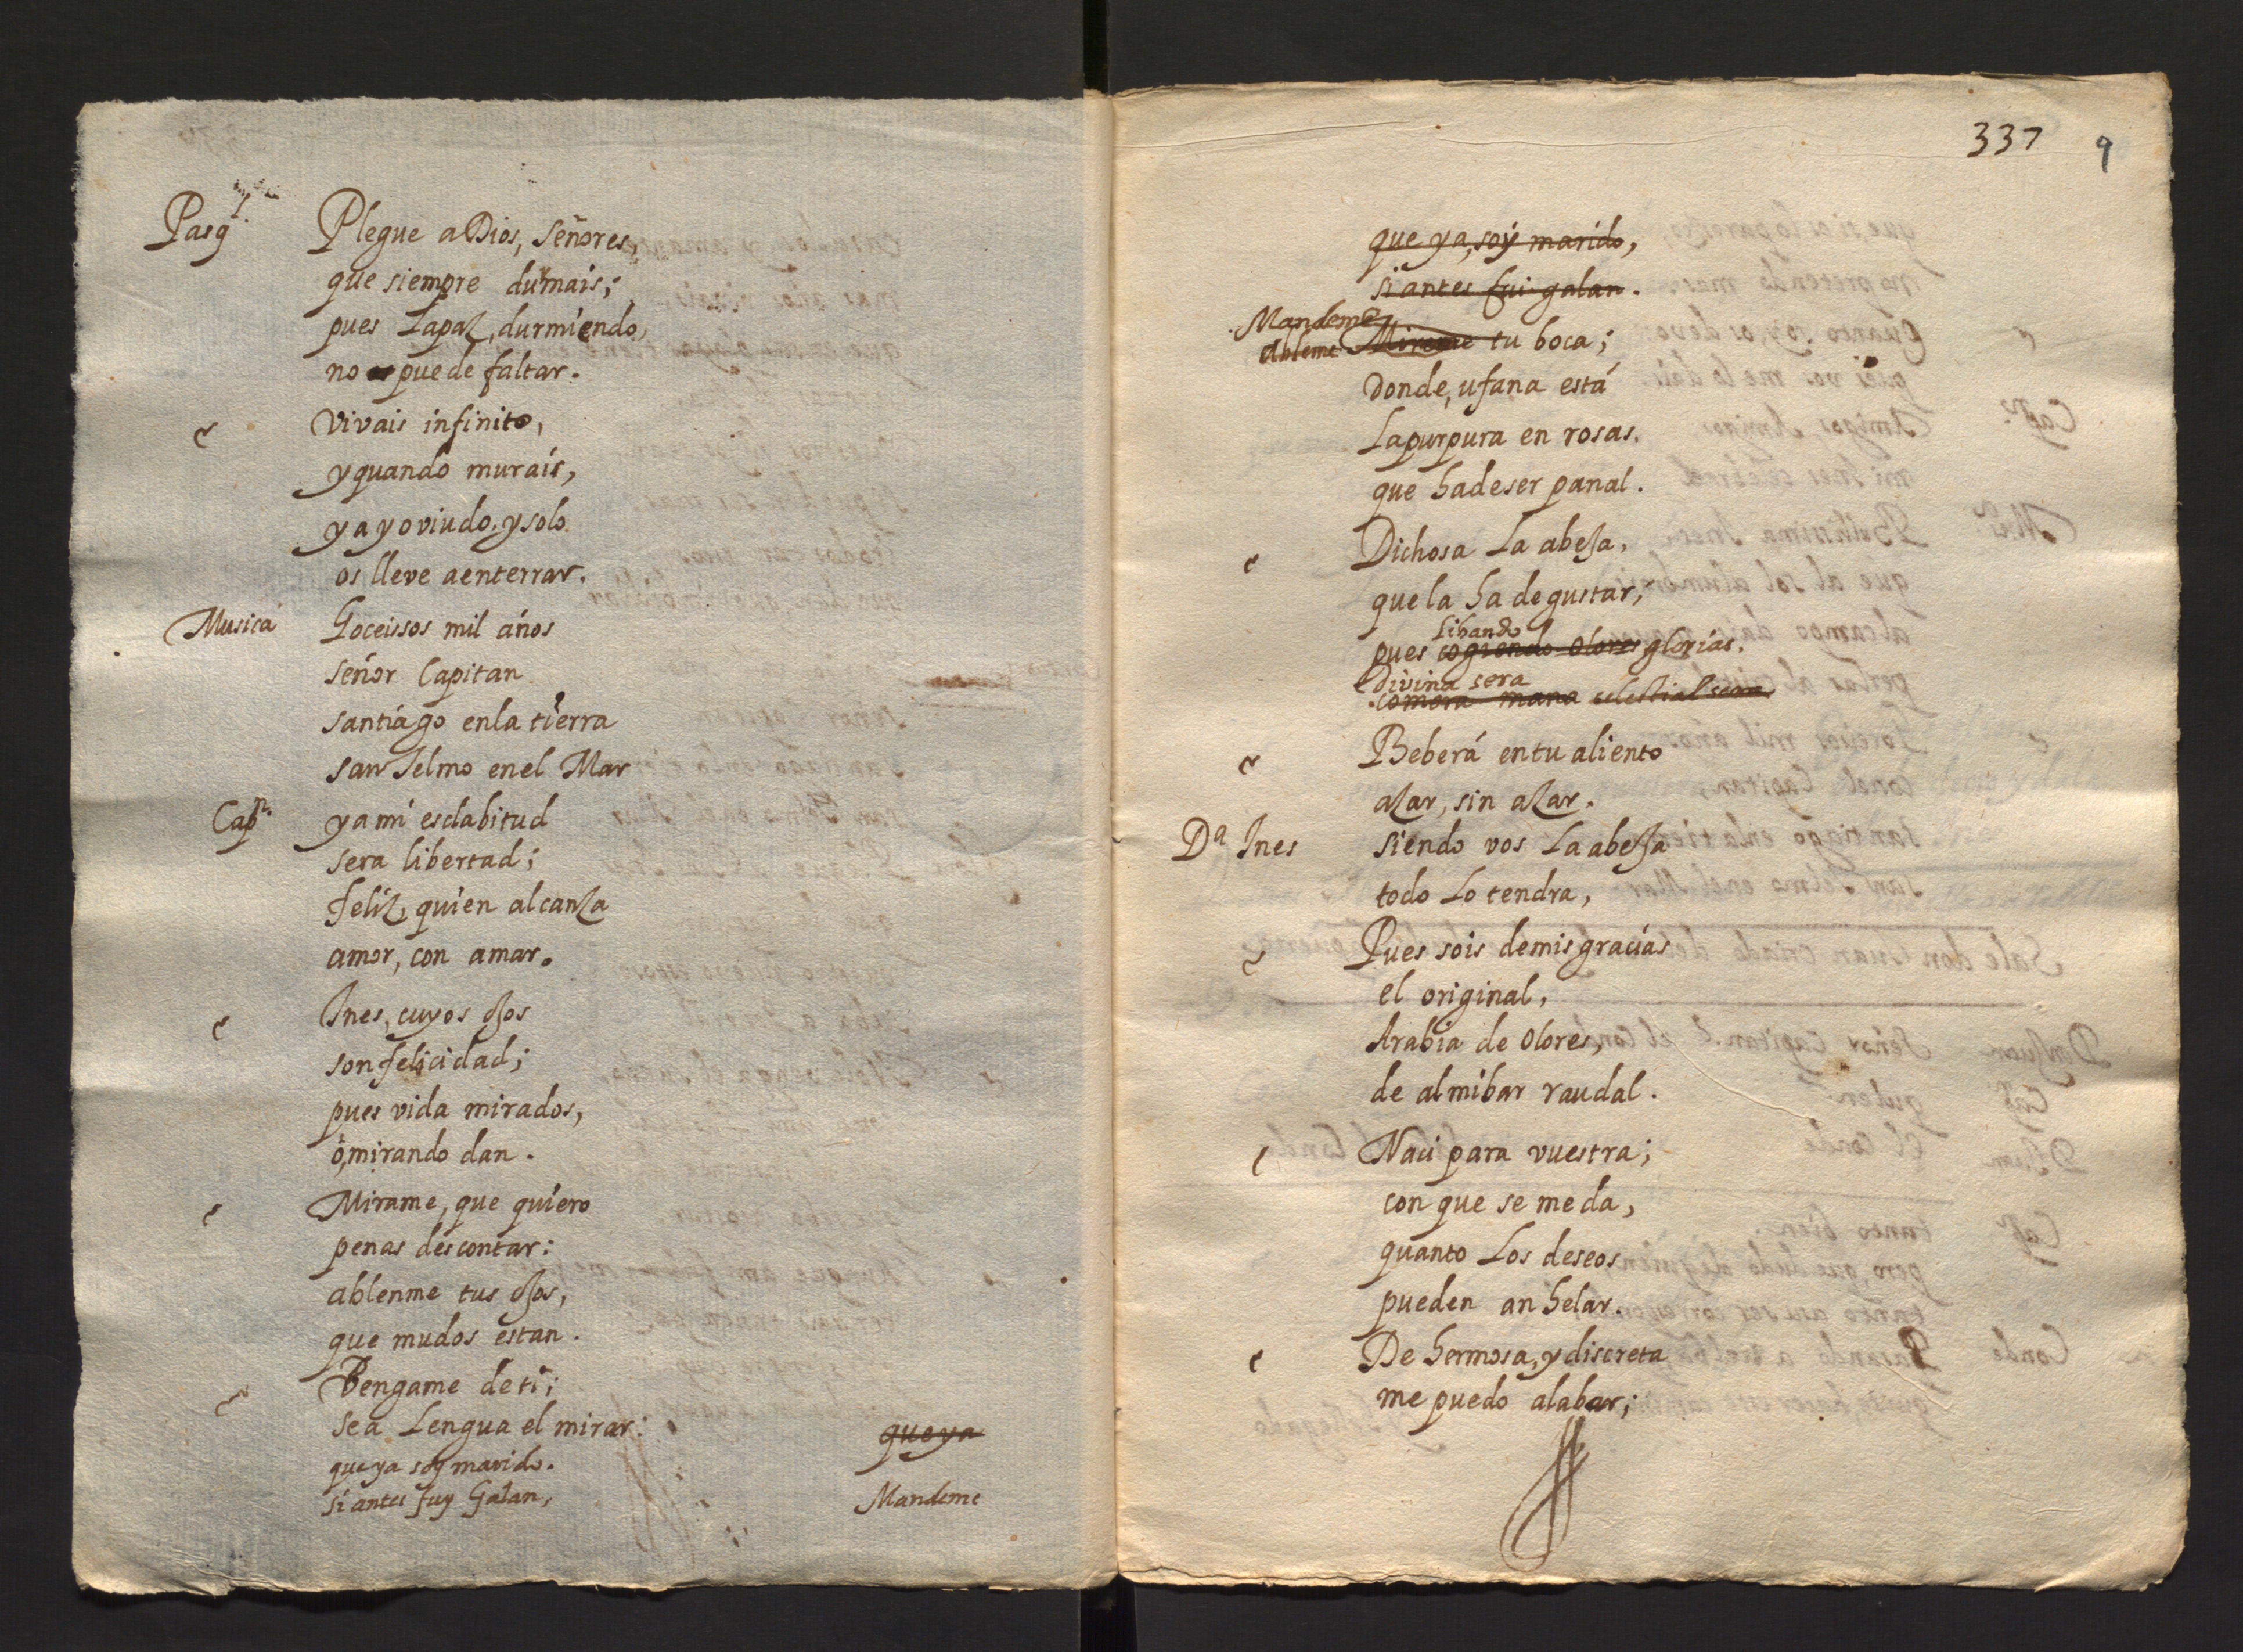 Pasql Plegue a Dios, señores,
que siempre durmais;
pues Lapaz, durmiendo,
no puede faltar.
Vivais infinito,
y quando murais,
ya yo viudo, y solo
os lleve a enterrar.
Musica Goceissos mil años
señor Capitan
santiago enla tierra
san Telmo enel Mar
Capn. ya mi esclabitud
sera libertad;
feliz, quien alcanza
amor, con amar.
Ines, cuyos ojos
son felicidad;
pues vida mirados,
ò, mirando dan.
Mirame, que quiero
penas descontar:
ablenme tus ojos,
que mudos estan.
Bengame de ti;
sea Lengua el mirar:
que ya soy marido.
si antes fuy Galan,
que ya
Mandeme
337 9
que ya, soy marido,
si antes fui galan.
Mandeme
ableme Mireme tu boca;
Donde, ufana está
La purpura en rosas,
que ha de ser panal.
Dichosa La abeja,
que la ha de gustar;
Libando
pues cogiendo olores glorias.
Divina sera
comera mana celestial sera
Beberá en tu aliento
azar, sin azar.
Da Ines siendo vos La abeja
todo Lo tendra,
Pues sois demis gracias
el original,
Arabia de olores,
de almibar raudal.
Naci para vuestra;
con que se me da,
quanto Los deseos
pueden anhelar.
De hermosa, y discreta
me puedo alabar;